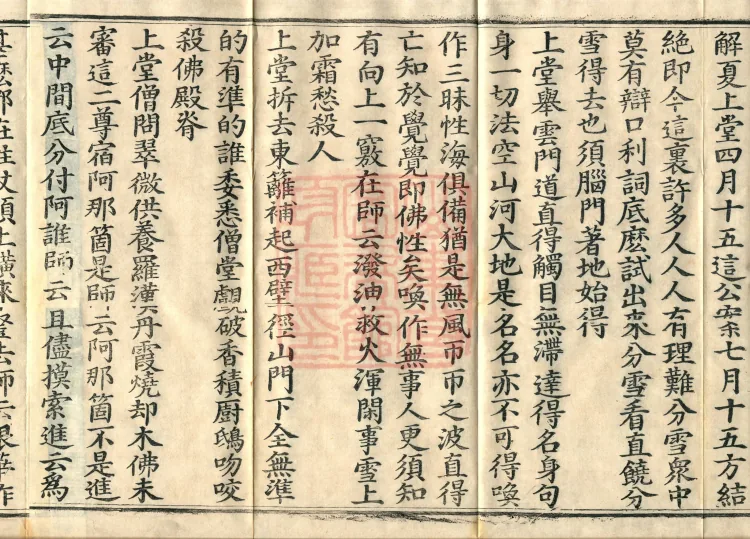 解夏上堂四月十五這公案七月十五方結
絶即今這裏許多人人人有理難分雪衆中
莫有辯口利詞底麼試出來分雪看直饒分
雪得去也須腦門著地始得
上堂舉雲門道直得觸目無滯達得名身句
身一切法空山河大地是名名亦不可得喚
作三昧性海俱備猶是無風帀帀之波直得
亡知於覺覺即佛性矣喚作無事人更須知
有向上一竅在師云潑油救火渾閑事雪上
加霜愁殺人
上堂拆去東籬補起西壁徑山門下全無準
的有準的誰委悉僧堂覷破香積厨鴟吻咬
殺佛殿脊
上堂僧問翠微供養羅漢丹霞燒却木佛未
審這二尊宿阿那箇是師云阿那箇不是進
云中間底分付阿誰師云且儘摸索進云爲
甚麽却在拄杖頭上橫來竪去師云眼華作